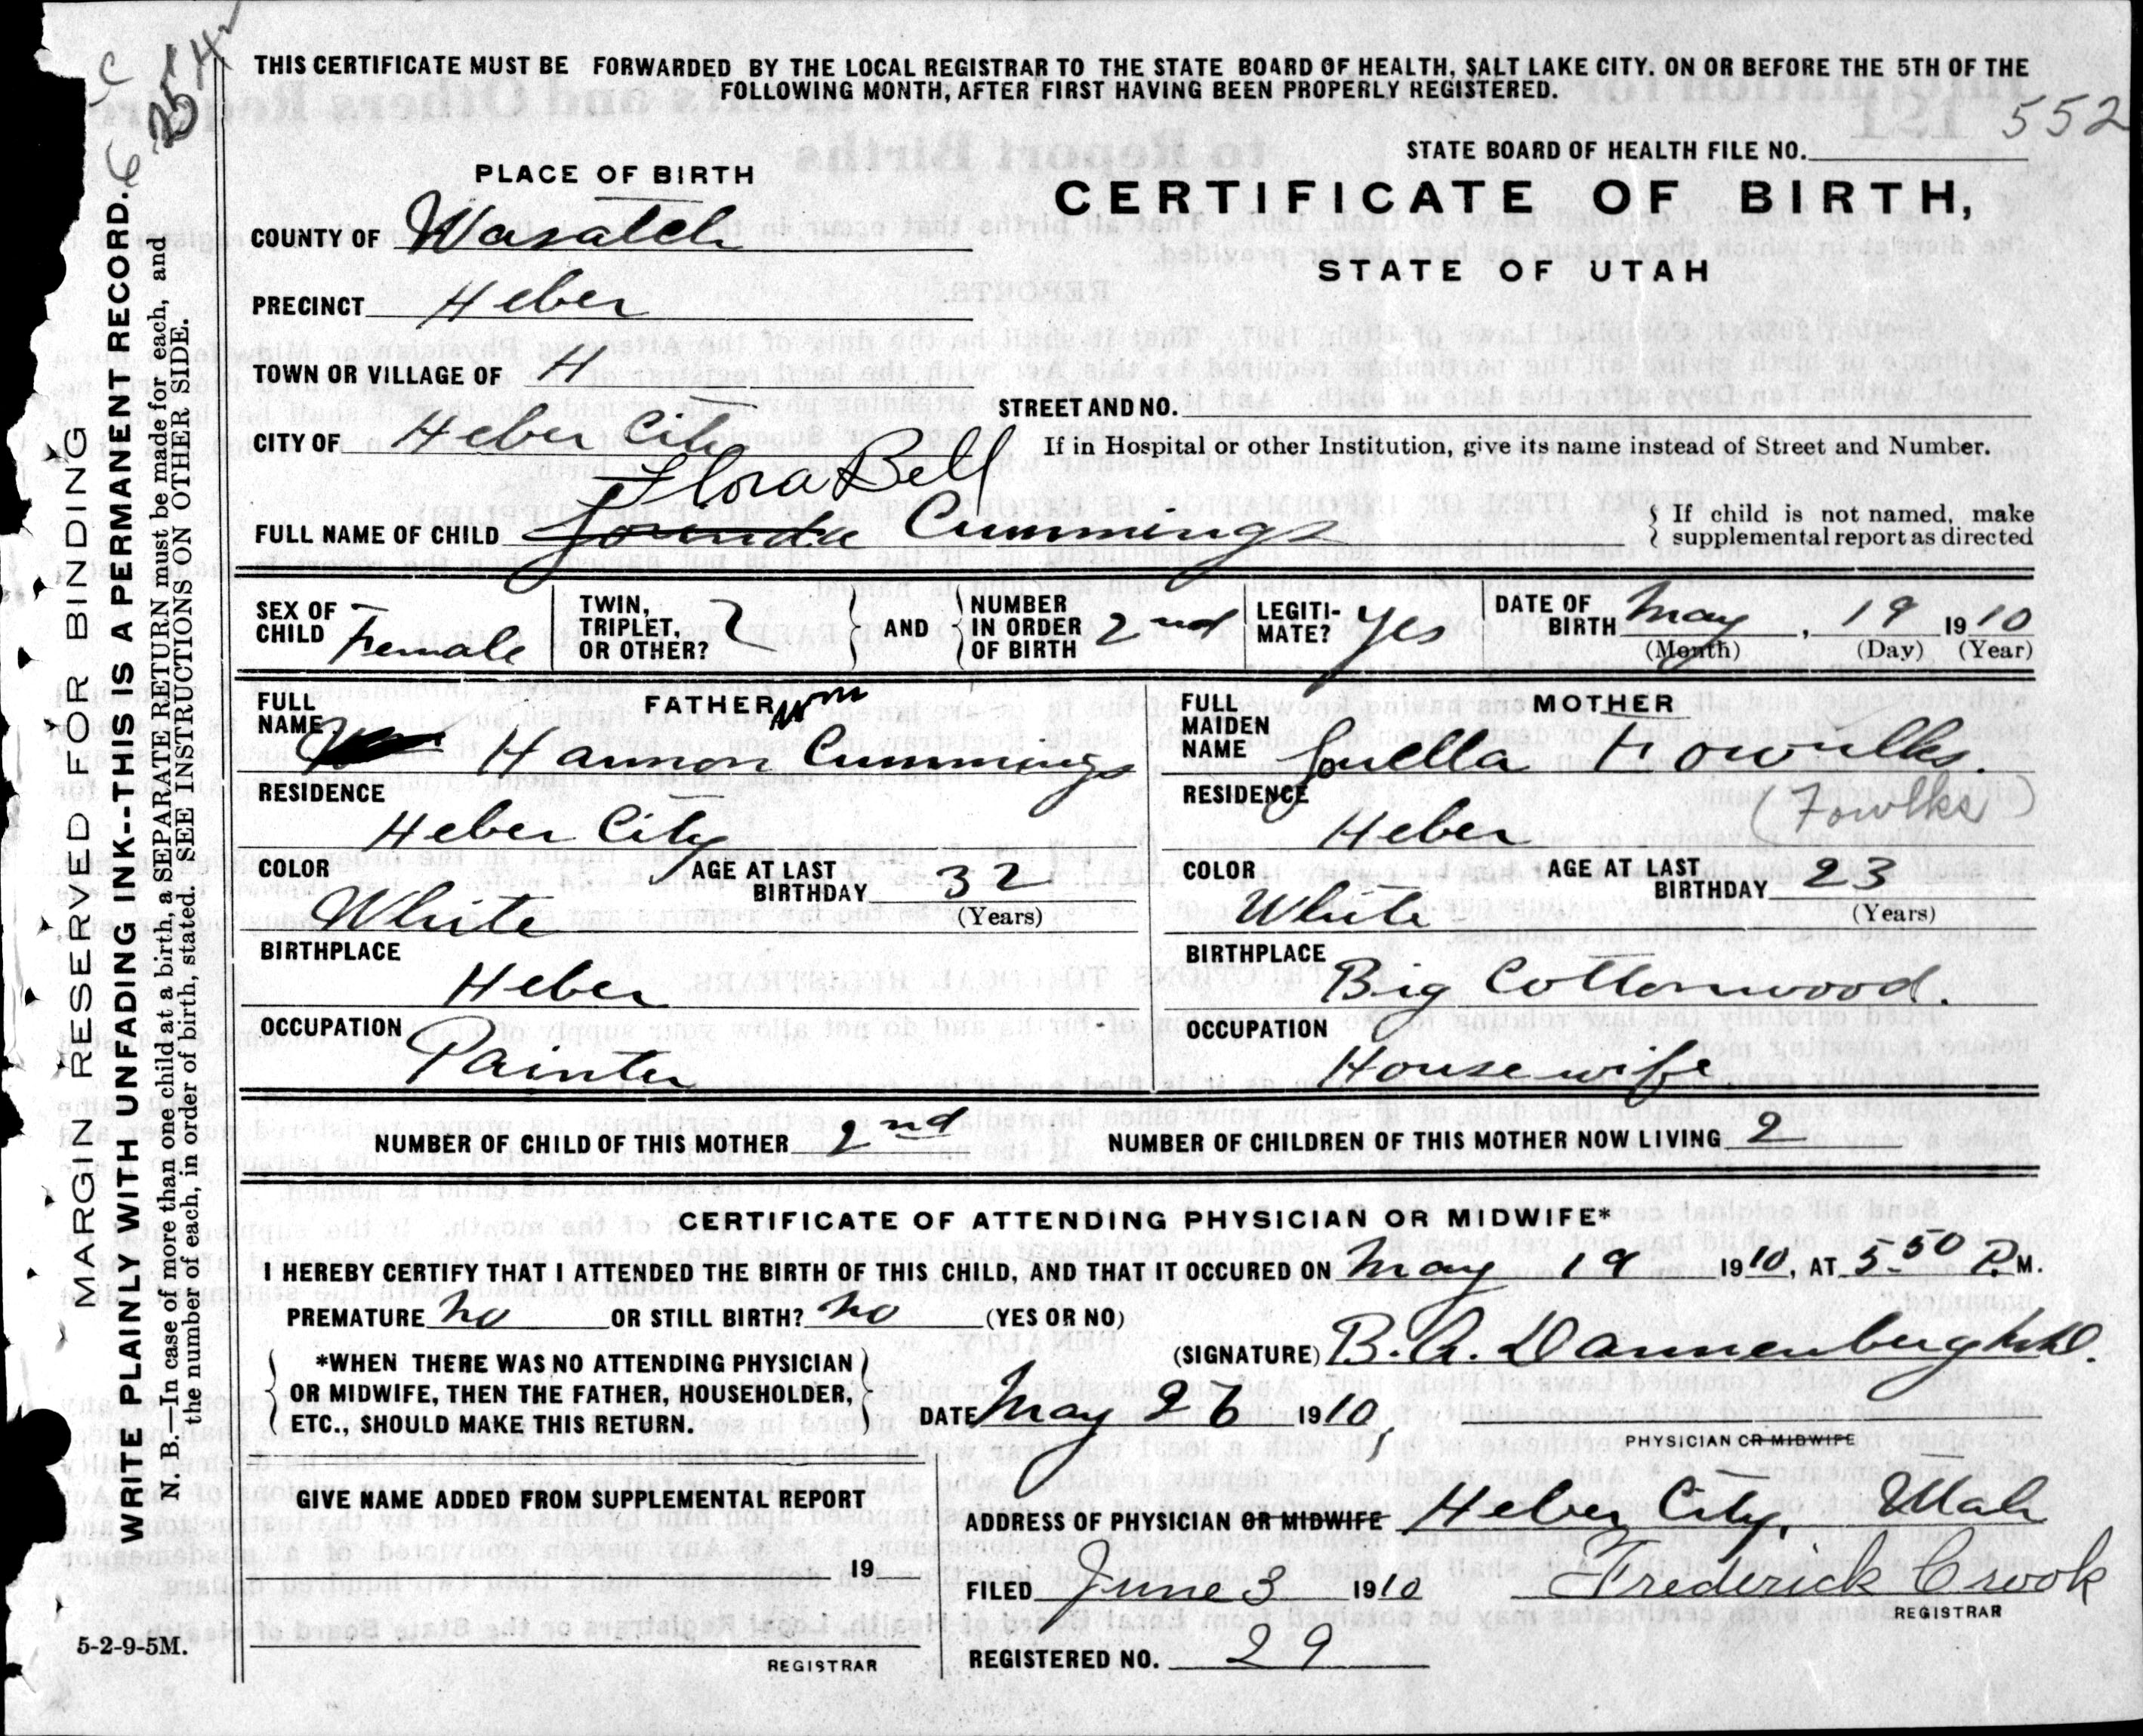 THIS CERTIFICATE MUST BE FORWARDED BY THE LOCAL REGISTRAR TO THE STATE BOARD OF HEALTH, SALT LAKE CITY. ON OR BEFORE THE 5TH OF THE
FOLLOWING MONTH, AFTER FIRST HAVING BEEN PROPERLY REGISTERED.
552
STATE BOARD OF HEALTH FILE NO.
PLACE OF BIRTH
CERTIFICATE OF BIRTH,
STATE OF UTAH
COUNTY OF Wasatch
PRECINCT Heber
TOWN OR VILLAGE OF H
STREET AND NO.
CITY OF Heber City
If in Hospital or other Institution, give its name instead of Street and Number.
Flora Bell
FULL NAME OF CHILD Cummings
If child is not named, make
supplemental report as directed
SEX OF CHILD Female
TWIN, TRIPLET, OR OTHER?
AND NUMBER IN ORDER OF BIRTH 2nd
LEGITI-MATE? Yes
DATE OF BIRTH May, 19 1910
(Month) (Day) (Year)
FATHER
FULL NAME Wm Harmon Cummings
RESIDENCE
Heber City
COLOR White
AGE AT LAST BIRTHDAY 32
(Years)
BIRTHPLACE
Heber
OCCUPATION
Painter
MOTHER
FULL MAIDEN NAME Louella Fowulks.
(Fowlks)
RESIDENCE
Heber
COLOR White
AGE AT LAST BIRTHDAY 23
(Years)
BIRTHPLACE
Big Cottonwood.
OCCUPATION
Housewife
NUMBER OF CHILD OF THIS MOTHER 2nd NUMBER OF CHILDREN OF THIS MOTHER NOW LIVING 2
CERTIFICATE OF ATTENDING PHYSICIAN OR MIDWIFE*
I HEREBY CERTIFY THAT I ATTENDED THE BIRTH OF THIS CHILD, AND THAT IT OCCURED ON May 19 1910, AT 5 50 P. M.
PREMATURE no OR STILL BIRTH? no (YES OR NO)
*WHEN THERE WAS NO ATTENDING PHYSICIAN
OR MIDWIFE, THEN THE FATHER, HOUSEHOLDER,
ETC., SHOULD MAKE THIS RETURN.
(SIGNATURE) B. A. Dannenberg M.D.
DATE May 26 1910
PHYSICIAN OR MIDWIFE
GIVE NAME ADDED FROM SUPPLEMENTAL REPORT
19
REGISTRAR
ADDRESS OF PHYSICIAN OR MIDWIFE Heber City, Utah
FILED June 3 1910 Frederick Crook
REGISTRAR
REGISTERED NO. 29
5-2-9-5M.
MARGIN RESERVED FOR BINDING
WRITE PLAINLY WITH UNFADING INK--THIS IS A PERMANENT RECORD.
N. B.—In case of more than one child at a birth, a SEPARATE RETURN must be made for each, and
the number of each, in order of birth, stated. SEE INSTRUCTIONS ON OTHER SIDE.